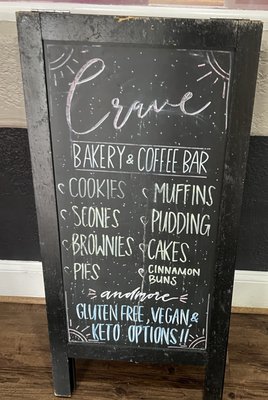 Crave
BAKERY & COFFEE BAR
COOKIES
SCONES
BROWNIES
PIES
MUFFINS
PUDDING
CAKES
CINNAMON
BUNS
and more
GLUTEN FREE, VEGAN &
KETO OPTIONS!!